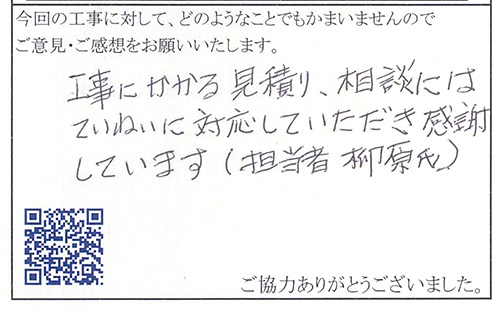 今回の工事に対して、どのようなことでもかまいませんので
ご意見・ご感想をお願いいたします。
工事にかかる見積り、相談には
ていねいに対応していただき感謝
しています(担当者 柳原氏)
ご協力ありがとうございました。